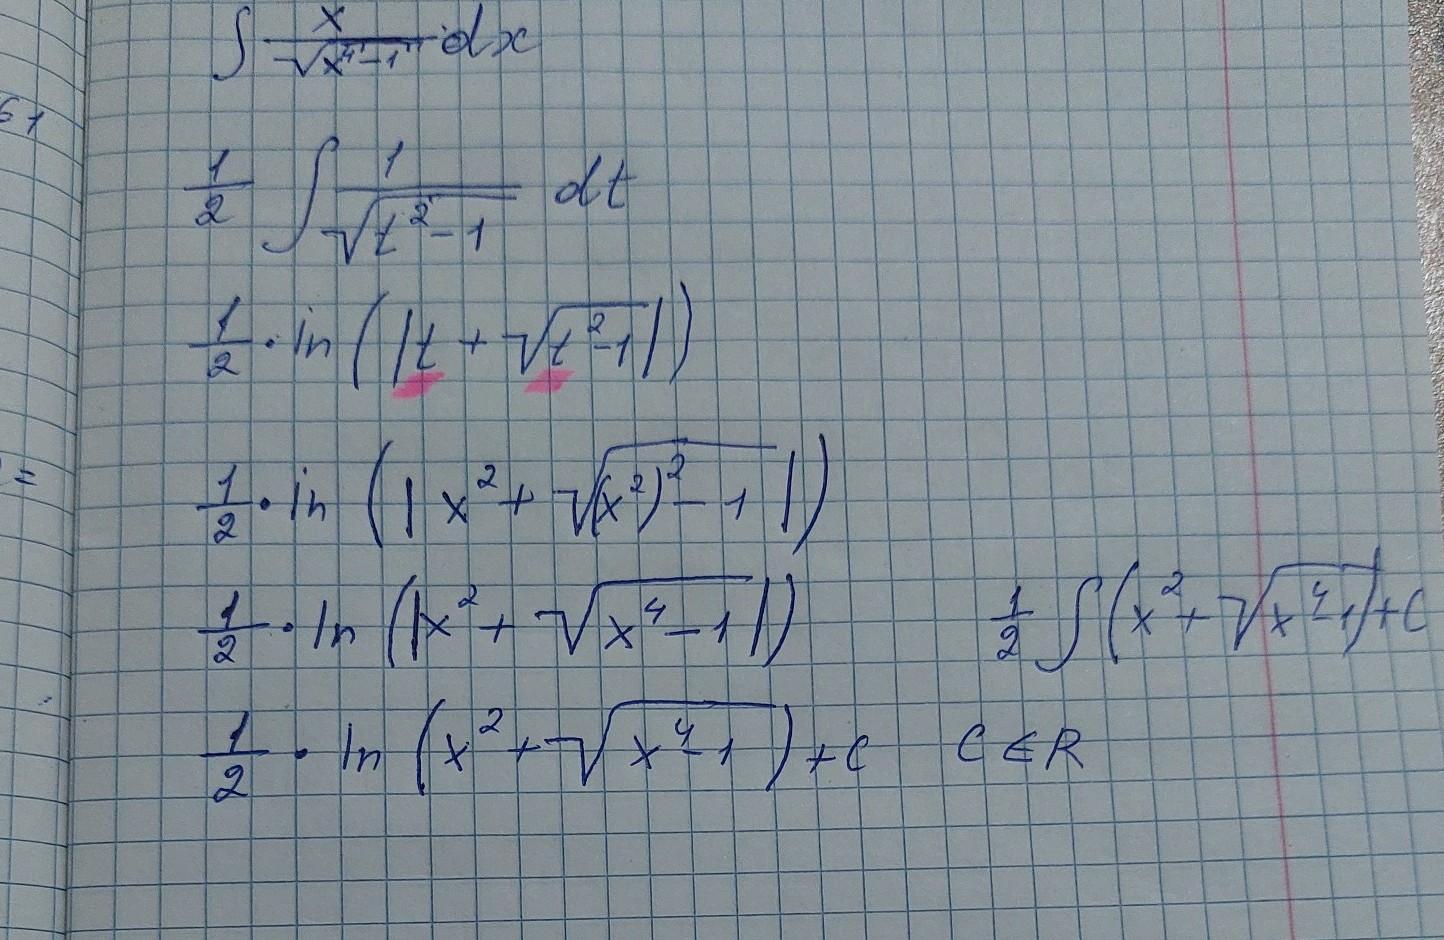 ∫ x/√(x⁴-1) dx
61
1/2 ∫ 1/√(t²-1) dt
1/2 · ln(|t + √(t²-1)|)
=
1/2 · ln(|x² + √((x²)²-1)|)
1/2 · ln(|x² + √(x⁴-1)|) 1/2 ∫(x² + √(x⁴-1)) + C
1/2 · ln(x² + √(x⁴-1)) + C C ∈ R